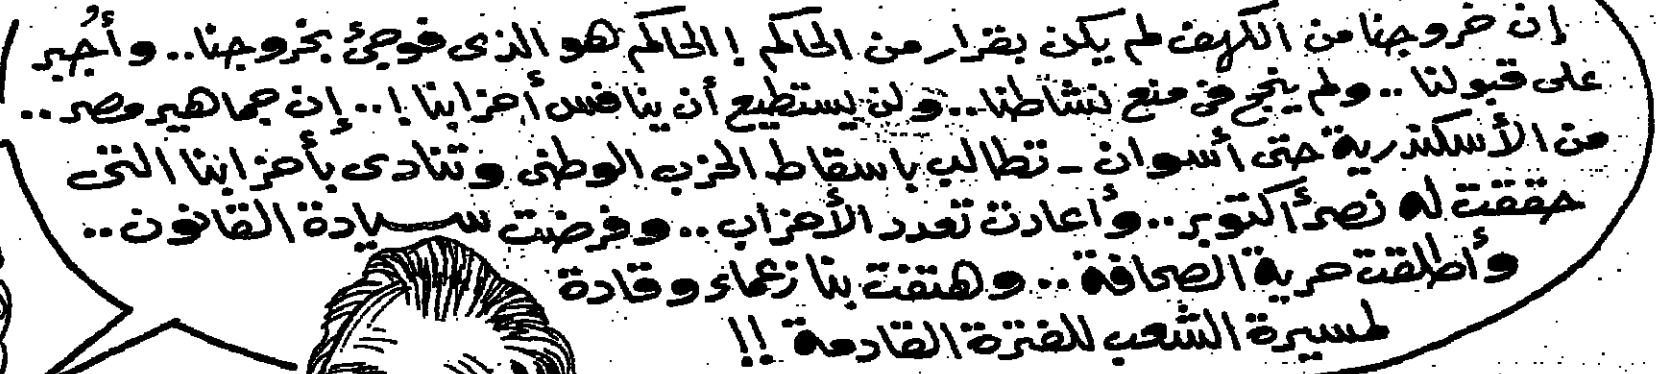 إن خروجنا من الكهف لم يكن بقرار من الحاكم ! الحاكم هو الذى فوجئ بخروجنا.. وأُجبر
على قبولنا .. ولم ينجح فى منع نشاطنا.. ولن يستطيع أن ينافس أحزابنا !.. إن جماهير مصر ..
من الأسكندرية حتى أسوان - تطالب باسقاط الحزب الوطنى وتنادى بأحزابنا التى
حققت له نصر أكتوبر .. وأعادت تعدد الأحزاب .. وفرضت سيادة القانون ..
وأطلقت حرية الصحافة .. وهتفت بنا زعماء وقادة
لمسيرة الشعب للفترة القادمة !!